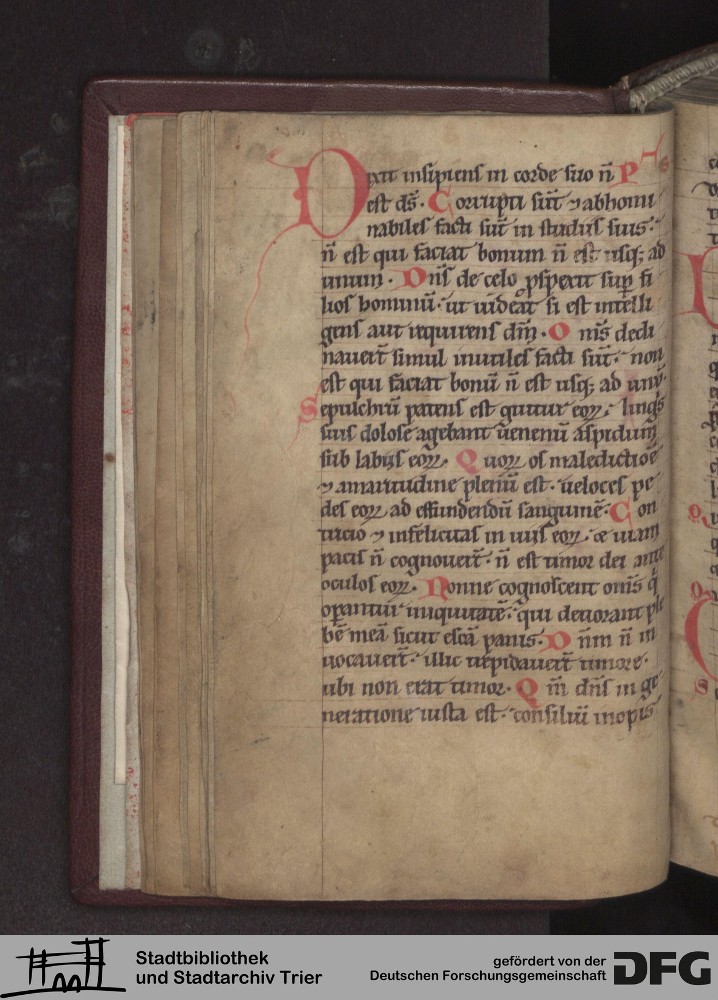 Dixit insipiens in corde suo n̄ Ps
est ds̄. Corrupti sūt ⁊ abhomi
nabiles facti sūt in studiis suis·
n̄ est qui faciat bonum n̄ est usq; ad
unum. Dn̄s de celo ꝓspexit suꝑ fi
lios hominū· ut uideāt si est intelli
gens aut requirens dm̄. Om̄s decli
nauer̄t simul inutiles facti sūt· non
est qui faciat bonū n̄ est usq; ad unū.
Sepulchrū patens est guttur eoꝝ· linguis
suis dolose agebant uenenū aspidum
sub labiis eoꝝ. Quoꝝ os maledictiōe
⁊ amaritudine plenū est· ueloces pe
des eoꝝ ad effundendū sanguinē. Con
tricio ⁊ infelicitas in uiis eoꝝ· & uiam
pacis n̄ cognouer̄t· n̄ est timor dei ante
oculos eoꝝ. Nonne cognoscent om̄s q̇
oꝑantur iniquitatē· qui deuorant ple
bē meā sicut escā panis. Dn̄m n̄ in
uocauer̄t· illic trepidauer̄t timore·
ubi non erat timor. Qm̄ dn̄s in ge
neratione iusta est· consiliū inopis
Stadtbibliothek
und Stadtarchiv Trier
gefördert von der
Deutschen Forschungsgemeinschaft
DFG